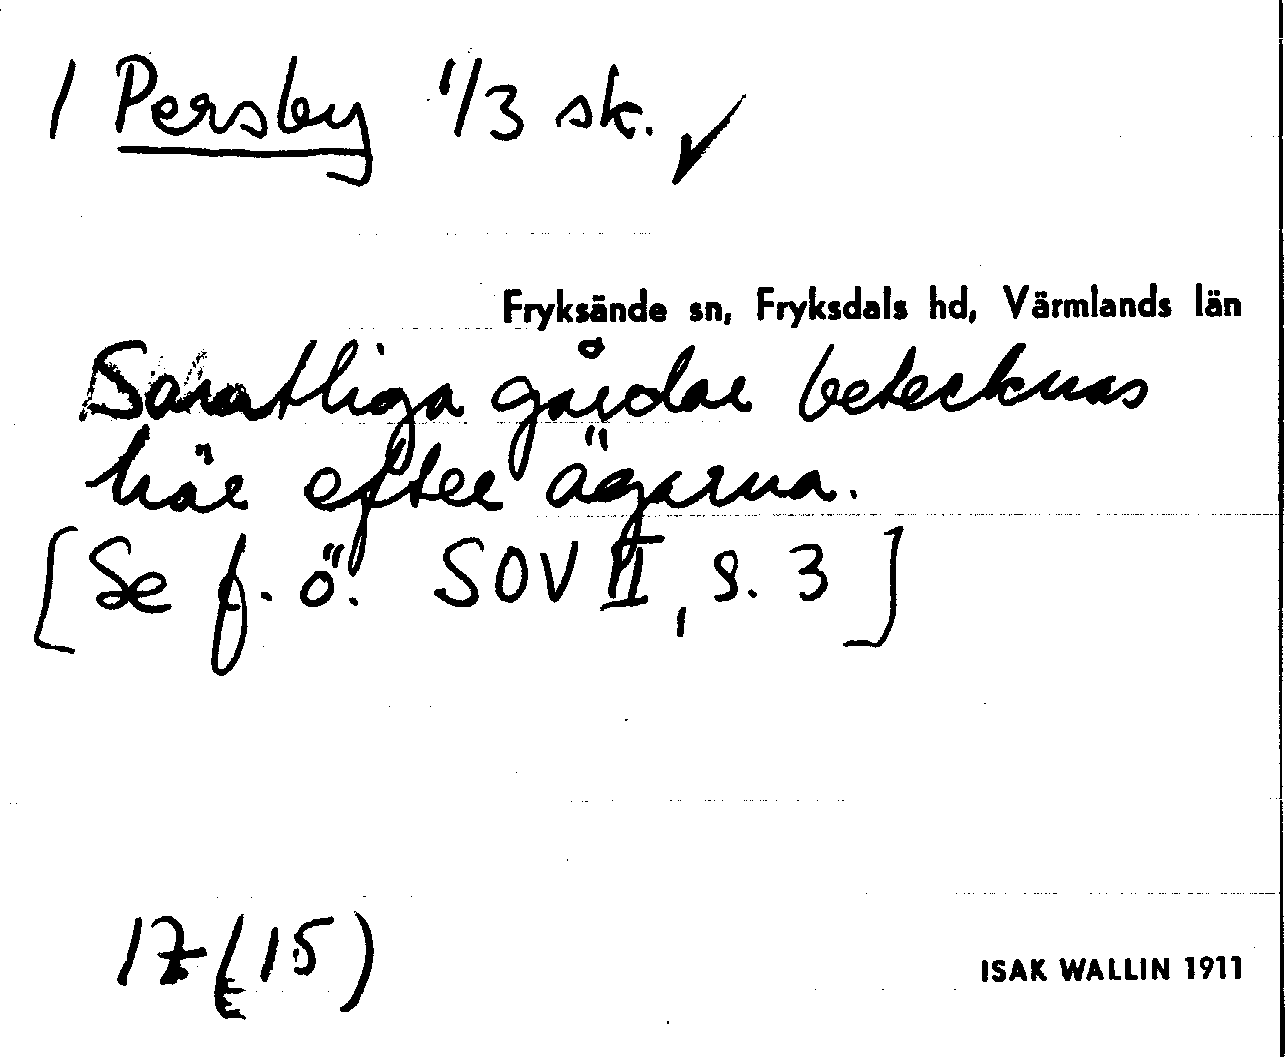 1 Persby 1/3 sk. ✓
Fryksände sn, Fryksdals hd, Värmlands län
Samtliga gårdar betecknas
här efter ägarna.
[Se f. ö. SOV II, s. 3]
17(15)
ISAK WALLIN 1911